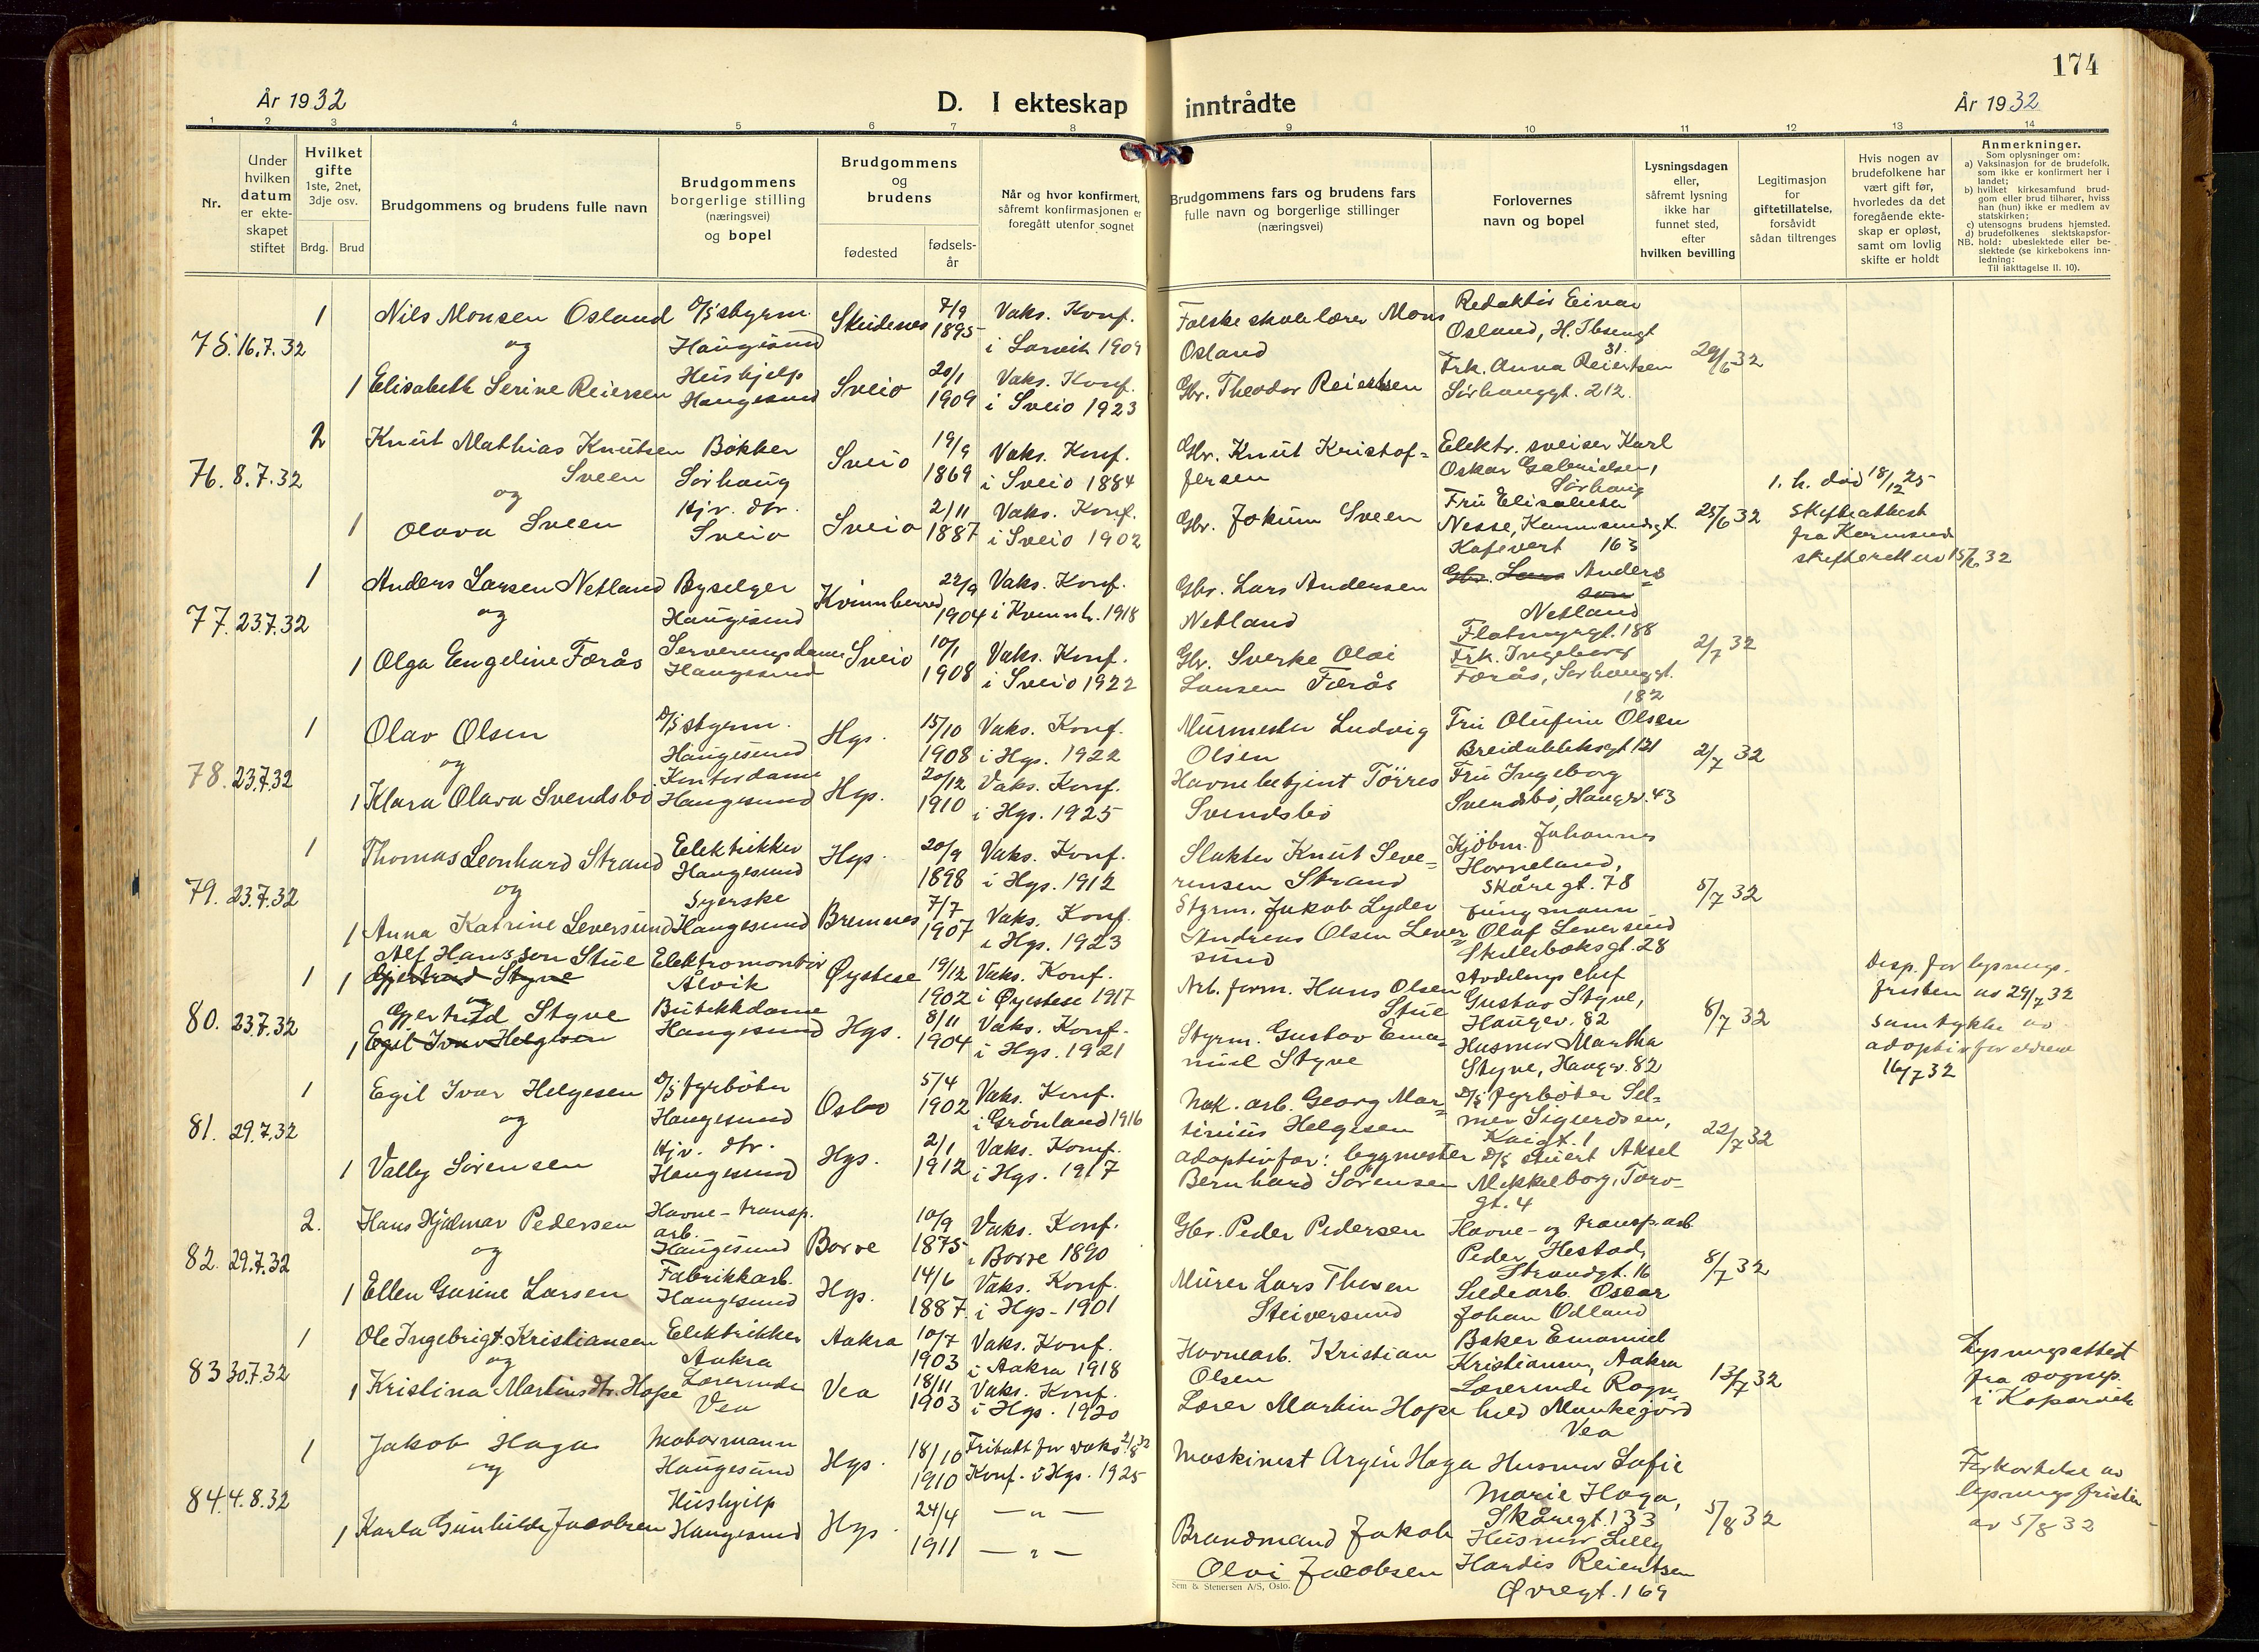 174
År 1932
D. I ekteskap inntrådte
År 1932
1 2 3 4 5 6 7 8 9 10 11 12 13 14
Nr.
Under
hvilken
datum
er ekte-
skapet
stiftet
Hvilket
gifte
1ste, 2net,
3dje osv.
Brdg. Brud
Brudgommens og brudens fulle navn
Brudgommens
borgerlige stilling
(næringsvei)
og bopel
Brudgommens
og
brudens
fødested
fødsels-
år
Når og hvor konfirmert,
såfremt konfirmasjonen er
foregått utenfor sognet
Brudgommens fars og brudens fars
fulle navn og borgerlige stillinger
(næringsvei)
Forlovernes
navn og bopel
Lysningsdagen
eller,
såfremt lysning
ikke har
funnet sted,
efter
hvilken bevilling
Legitimasjon
for
giftetillatelse,
forsåvidt
sådan tiltrenges
Hvis nogen av
brudefolkene har
vært gift før,
hvorledes da det
foregående ekte-
skap er opløst,
samt om lovlig
skifte er holdt
Anmerkninger.
Som oplysninger om:
a) Vaksinasjon for de brudefolk,
som ikke er konfirmert her i
landet;
b) hvilket kirkesamfund brud-
gom eller brud tilhører, hviss
han (hun) ikke er medlem av
statskirken;
c) utensogns brudens hjemsted.
d) brudefolkenes slektskapsfor-
NB. hold: ubeslektede eller be-
slektede (se kirkebokens inn-
ledning:
Til iakttagelse II. 10).
75. 16.7.32
1 Nils Monsen Osland D/s styrm. Haugesund Skudenes 7/9 1895 Vaks. Konf. i Larvik 1909
og
1 Elisabeth Serine Reiersen Hushjelp Haugesund Sveio 20/1 1909 Vaks. Konf. i Sveio 1923
Folkeskolelærer Mons Osland
Gbr. Theodor Reiertsen
Redaktør Einar
Osland, H. Ibsensgt
31.
Frk. Anna Reiertsen
Sørhauggt. 212.
29/6 32
76. 8.7.32
2 Knut Mathias Knutsen Sveen Bøkker Sørhaug Sveio 19/9 1869 Vaks. Konf. i Sveio 1884
og
1 Olava Sveen Hjv. dtr. Sveio Sveio 2/11 1887 Vaks. Konf. i Sveio 1902
Gbr. Knut Kristof=
fersen
Gbr. Jokum Sveen
Elektr. sveiser Karl
Oskar Gabrielsen,
Sørhaug
Fru Elisabeth
Nesse, Karmsundsgt.
Kafevert 163
25/6 32
1. h. död 18/12 25
Skifteattest
fra Karmsund
skifterett av 15/6 32
77. 23.7.32
1 Anders Larsen Netland Byselger Haugesund Kvinnherred 22/9 1904 Vaks. Konf. i Kvinnh. 1918
og
1 Olga Engeline Færås Serveringsdame Haugesund Sveio 10/1 1908 Vaks. Konf. i Sveio 1922
Gbr. Lars Andersen
Netland
Gbr. Sverke Olai
Larsen Færås
Gbr. Lars Anders
son
Netland
Flotmyrgt. 188
Frk. Ingeborg
Færås, Sørhauggt.
182
2/7 32
78. 23.7.32
1 Olav Olsen D/s styrm. Haugesund Hgs. 15/10 1908 Vaks. Konf. i Hgs. 1922
og
1 Klara Olava Svendsbø Kontordame Haugesund Hgs. 20/12 1910 Vaks. Konf. i Hgs. 1925
Murmester Ludvig
Olsen
Havnebetjent Tørres
Svendsbø
Fru Olufine Olsen
Breidablikgt 121
Fru Ingeborg
Svendsbø, Haugev. 43
2/7 32
79. 23.7.32
1 Thomas Leonhard Strand Elektrikker Haugesund Hgs. 20/9 1898 Vaks. Konf. i Hgs. 1912
og
1 Anna Katrine Leversund Syerske Haugesund Bremnes 7/7 1907 Vaks. Konf. i Hgs. 1923
Slakter Knut Seve=
rinsen Strand
Styrm. Jakob Lyder
Andreas Olsen Lever=
sund
Kjøbm. Johannes
Horneland,
Skåregt. 78
Jungmann
Olaf Leversund
Skillebeksgt. 28
5/7 32
80. 23.7.32
1 1 Alf Hansson Stue Elektromontør Ålvik Øystese 19/12 1902 Vaks. Konf. i Øystese 1917
Gjertrud Styve
og
Gjertrud Styve Butikkdame Haugesund Hgs. 8/11 1904 Vaks. Konf. i Hgs. 1921
1 Egil Ivar Helgesen
Arb. form. Hans Olsen
Stue
Styrm. Gustav Ema=
nuel Styve
Avdelings chef
Gustav Styve,
Haugev. 82
Husmor Martha
Styve, Haugev. 82
8/7 32
Disp. for lysnings-
fristen av 29/7 32
81. 29.7.32
1 Egil Ivar Helgesen D/s fyrbøter Haugesund Oslo 5/4 1902 Vaks. Konf. i Grønland 1916
og
1 Valby Sørensen Hjv. dtr. Haugesund Hgs. 2/1 1912 Vaks. Konf. i Hgs. 1917
Mek. arb. Georg Mar=
tinius Helgesen
adoptivfar: byggmester
Bernhard Sørensen
D/s fyrbøter Sel-
mer Sigurdsen,
Kaigt. 1
D/s stuert Aksel
Mekkelborg, Torv-
gt. 4
22/7 32
samtykke av
adoptivforeldrene
16/7 32
82. 29.7.32
2. Hans Hjalmar Pedersen Havne-transp. arb. Haugesund Borre 10/9 1875 Vaks. Konf. i Borre 1890
og
1 Ellen Gurine Larsen Fabrikkarb. Haugesund Hgs. 14/6 1887 Vaks. Konf. i Hgs. 1901
Gbr. Peder Pedersen
Murer Lars Thesen
Steiversund
Havne- og transp. arb
Peder Hestad,
Strandgt. 16
Sildearb. Oscar
Johan Odland
8/7 32
83 30.7.32
1 Ole Ingebrigt Kristiansen Elektrikker Aakra Aakra 10/7 1903 Vaks. Konf. i Aakra 1918
og
1 Kristina Martinsdtr. Hope Lærerinde Vea Vea 18/11 1903 Vaks. Konf. i Hgs. 1920
Havnearb. Kristian
Olsen
Lærer Martin Hope
Baker Emanuel
Kristiansen, Aakra
Lærerinde Ragn
hild Munkejord
Vea
13/7 32
Lysningsattest
fra sognep.
i Kopervik
84. 4.8.32
1 Jakob Haga Motormann Haugesund Hgs. 18/10 1910 Fribatt for vaks. 2/8 32 Konf. i Hgs. 1925
og
1 Karla Gunhilde Jacobsen Hushjelp Haugesund Hgs. 24/4 1911 — „ — — „ —
Maskinist Argin Haga
Brandmand Jakob
Olvi Jacobsen
Husmor Sofie
Marie Haga,
Skåregt. 133
Husmor Lilly
Hardis Reiertsen
Øvregt. 169
5/8 32
Forkortelse av
lysningsfristen
av 5/8 32
Sem & Stenersen A/S, Oslo.